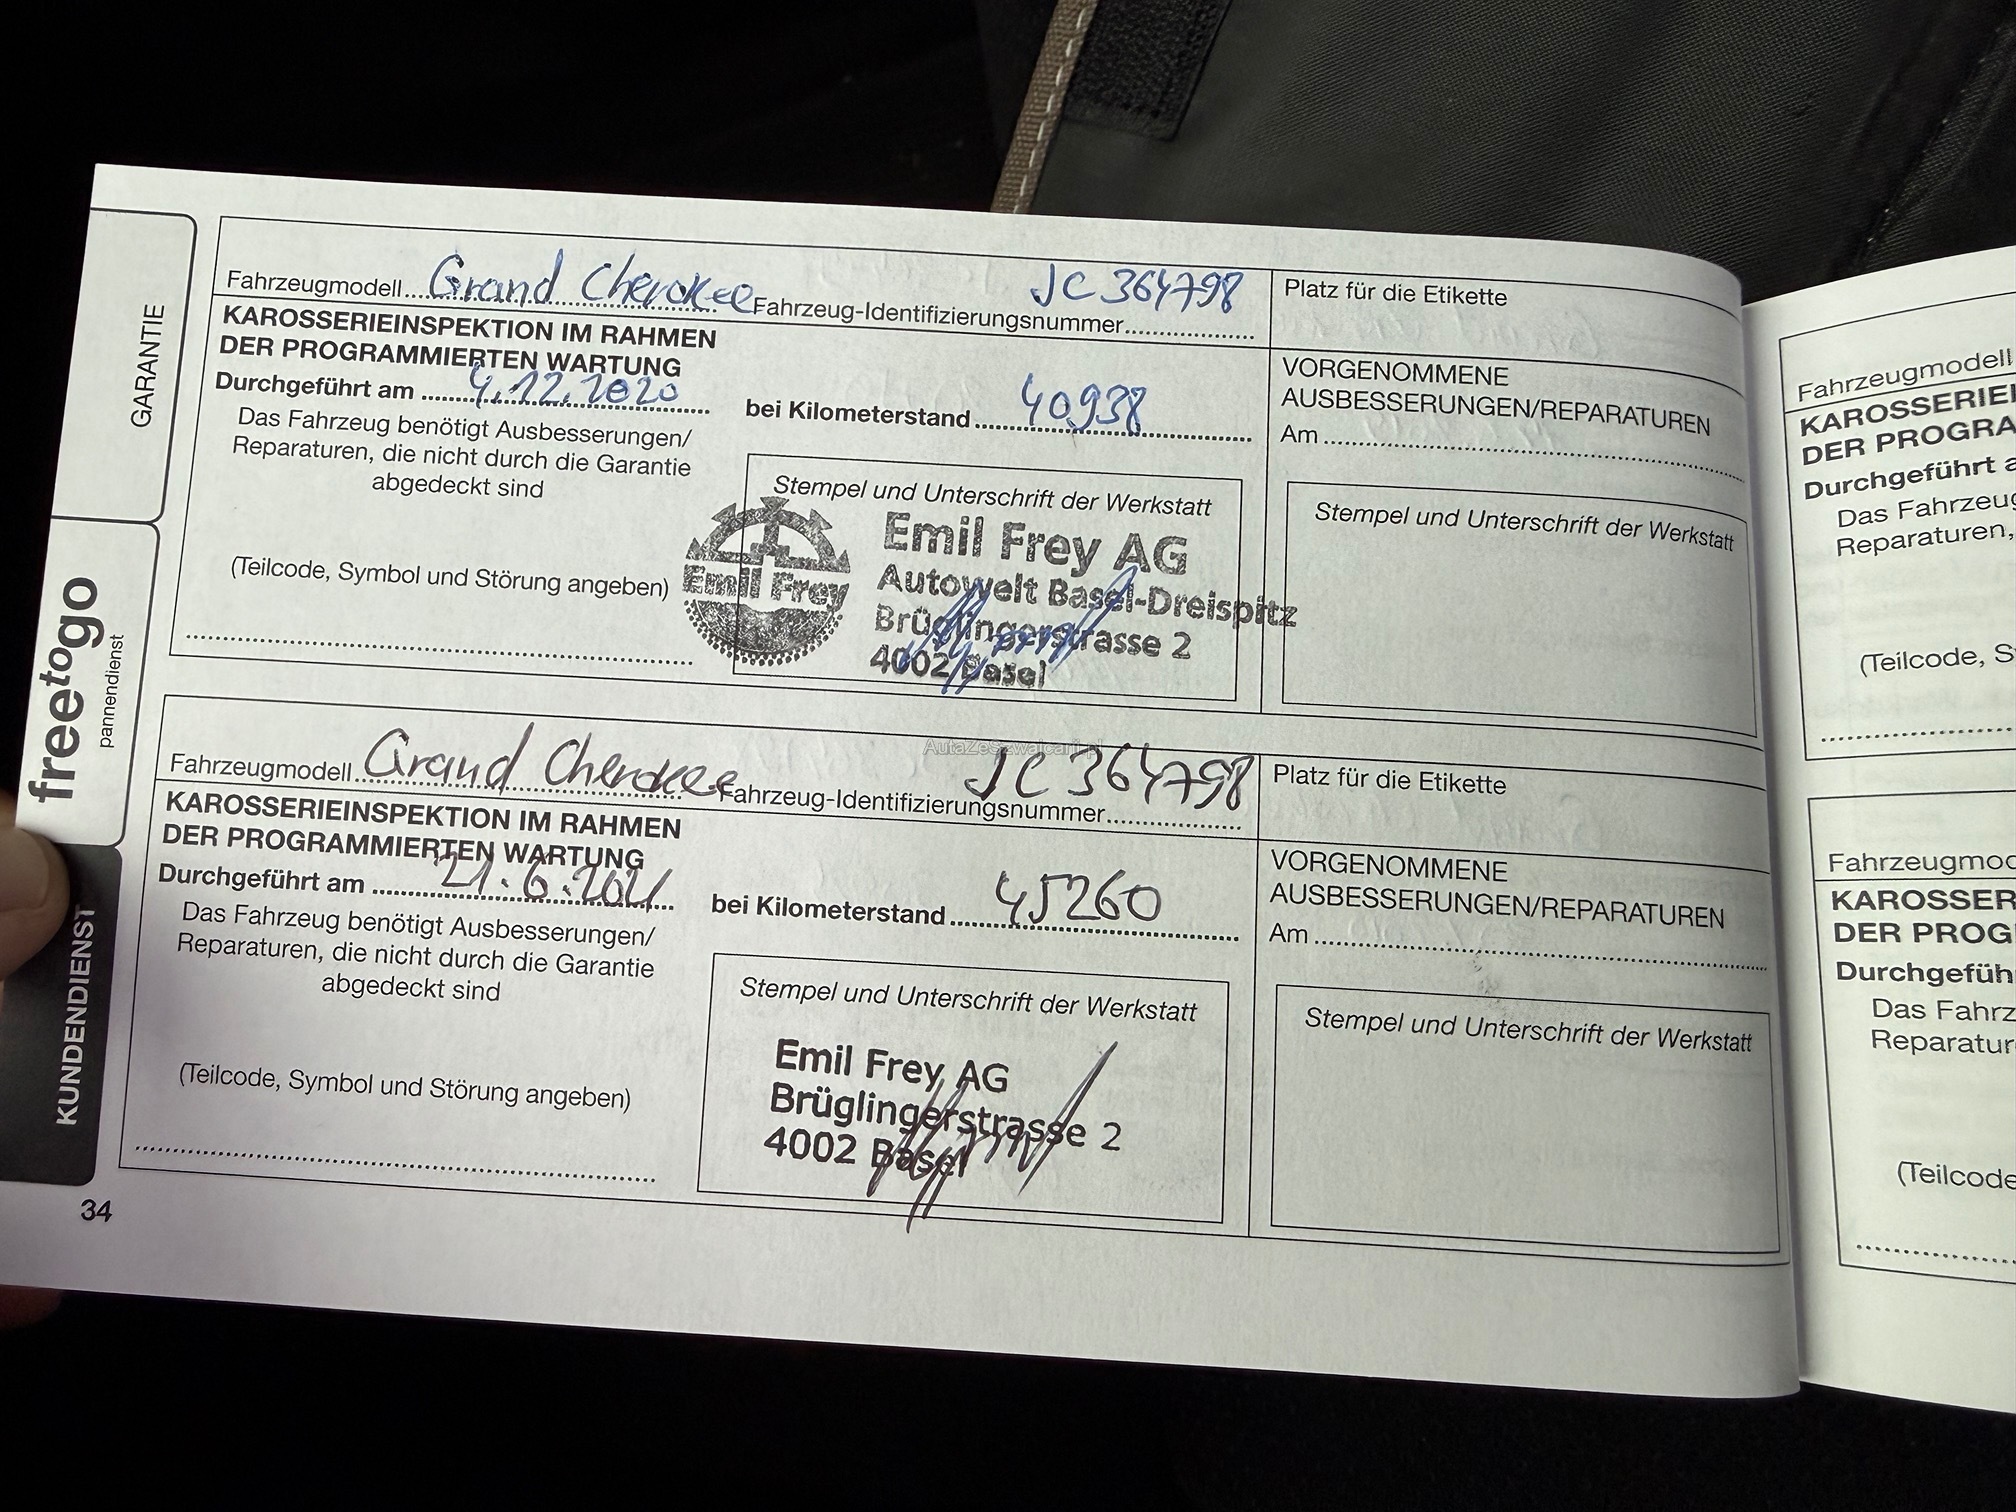 GARANTIE
freetogo
pannendienst
KUNDENDIENST
Fahrzeugmodell Grand Cherokee Fahrzeug-Identifizierungsnummer JC 364798
Platz für die Etikette
KAROSSERIEINSPEKTION IM RAHMEN
DER PROGRAMMIERTEN WARTUNG
Durchgeführt am 4.12.2020
bei Kilometerstand 40938
Das Fahrzeug benötigt Ausbesserungen/
Reparaturen, die nicht durch die Garantie
abgedeckt sind
(Teilcode, Symbol und Störung angeben)
Stempel und Unterschrift der Werkstatt
Emil Frey
Emil Frey AG
Autowelt Basel-Dreispitz
Brüglingerstrasse 2
4002 Basel
VORGENOMMENE
AUSBESSERUNGEN/REPARATUREN
Am
Stempel und Unterschrift der Werkstatt
AutaZeSzwajcarii.pl
Fahrzeugmodell Grand Cherokee Fahrzeug-Identifizierungsnummer JC 364798
Platz für die Etikette
KAROSSERIEINSPEKTION IM RAHMEN
DER PROGRAMMIERTEN WARTUNG
Durchgeführt am 21.6.2021
bei Kilometerstand 45260
Das Fahrzeug benötigt Ausbesserungen/
Reparaturen, die nicht durch die Garantie
abgedeckt sind
(Teilcode, Symbol und Störung angeben)
Stempel und Unterschrift der Werkstatt
Emil Frey AG
Brüglingerstrasse 2
4002 Basel
VORGENOMMENE
AUSBESSERUNGEN/REPARATUREN
Am
Stempel und Unterschrift der Werkstatt
34
Fahrzeugmodell
KAROSSERIEI
DER PROGRA
Durchgeführt a
Das Fahrzeug
Reparaturen,
(Teilcode, S
Fahrzeugmod
KAROSSER
DER PROG
Durchgefüh
Das Fahrz
Reparatur
(Teilcode